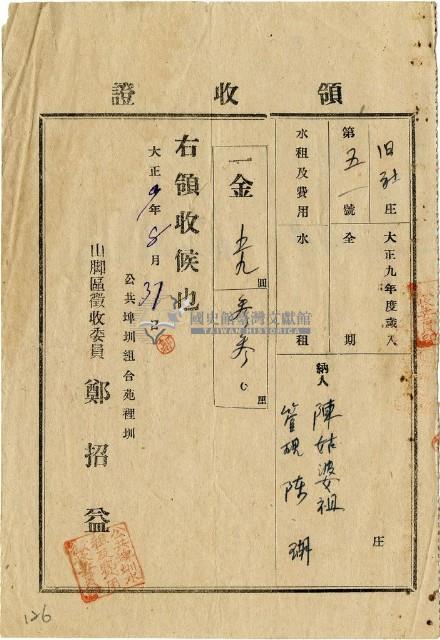 領收證
旧社庄 大正九年度歲入
第五一號 全期
水租及費用 水租
納人 陳姑婆祖
管理 陳瑚
庄
一金 圓 厘
右領收候也
大正9年8月31日
公共埤圳組合苑裡圳
山脚區徵收委員 鄭招益
國史館臺灣文獻館
TAIWAN HISTORICA
126